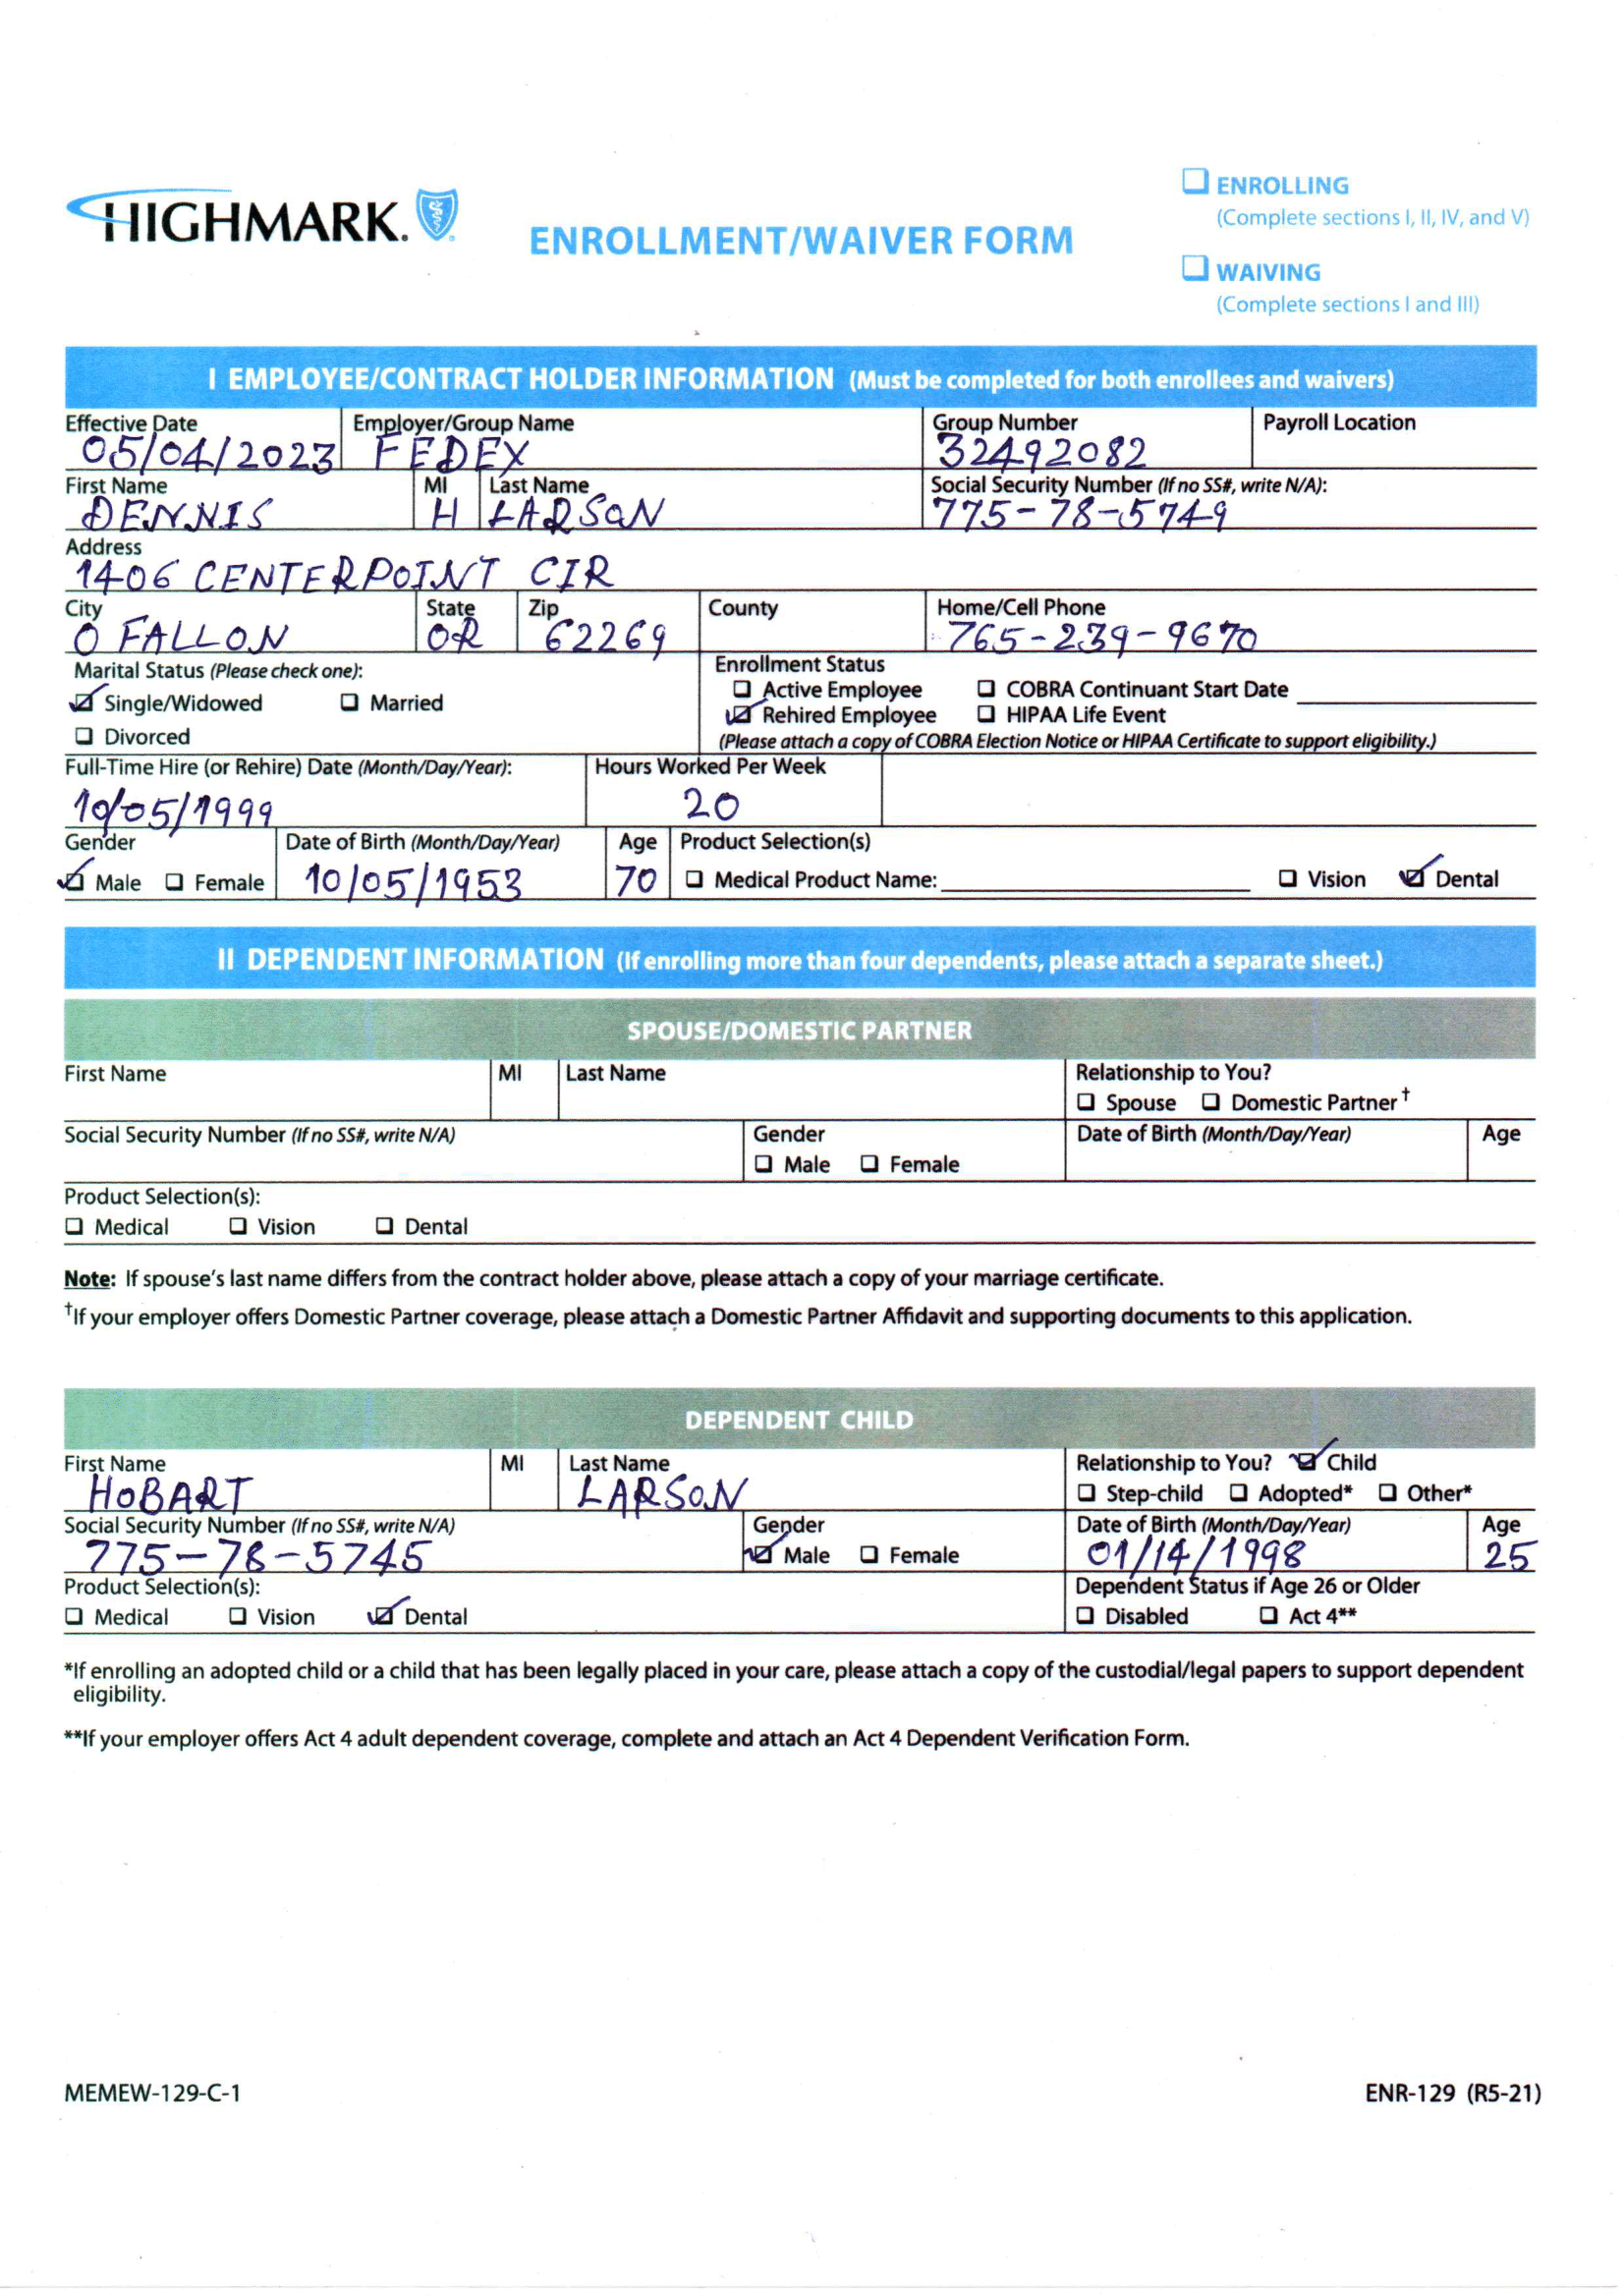 HIGHMARK.
ENROLLMENT/WAIVER FORM
ENROLLING
(Complete sections I, II, IV, and V)
WAIVING
(Complete sections I and III)
I EMPLOYEE/CONTRACT HOLDER INFORMATION (Must be completed for both enrollees and waivers)
Effective Date Employer/Group Name Group Number Payroll Location
05/04/2023 FEDEX 32492082
First Name MI Last Name Social Security Number (If no SS#, write N/A):
DENNIS H LARSON 775-78-5749
Address
1406 CENTERPOINT CIR
City State Zip County Home/Cell Phone
O FALLON OR 62269 765-239-9670
Marital Status (Please check one): Enrollment Status
Single/Widowed Married Active Employee COBRA Continuant Start Date
Divorced Rehired Employee HIPAA Life Event
(Please attach a copy of COBRA Election Notice or HIPAA Certificate to support eligibility.)
Full-Time Hire (or Rehire) Date (Month/Day/Year): Hours Worked Per Week
10/05/1999 20
Gender Date of Birth (Month/Day/Year) Age Product Selection(s)
Male Female 10/05/1953 70 Medical Product Name: Vision Dental
II DEPENDENT INFORMATION (If enrolling more than four dependents, please attach a separate sheet.)
SPOUSE/DOMESTIC PARTNER
First Name MI Last Name Relationship to You?
Spouse Domestic Partner†
Social Security Number (If no SS#, write N/A) Gender Date of Birth (Month/Day/Year) Age
Male Female
Product Selection(s):
Medical Vision Dental
Note: If spouse's last name differs from the contract holder above, please attach a copy of your marriage certificate.
†If your employer offers Domestic Partner coverage, please attach a Domestic Partner Affidavit and supporting documents to this application.
DEPENDENT CHILD
First Name MI Last Name Relationship to You? Child
HOBART LARSON Step-child Adopted* Other*
Social Security Number (If no SS#, write N/A) Gender Date of Birth (Month/Day/Year) Age
775-78-5745 Male Female 01/14/1998 25
Product Selection(s): Dependent Status if Age 26 or Older
Medical Vision Dental Disabled Act 4**
*If enrolling an adopted child or a child that has been legally placed in your care, please attach a copy of the custodial/legal papers to support dependent
eligibility.
**If your employer offers Act 4 adult dependent coverage, complete and attach an Act 4 Dependent Verification Form.
MEMEW-129-C-1 ENR-129 (R5-21)